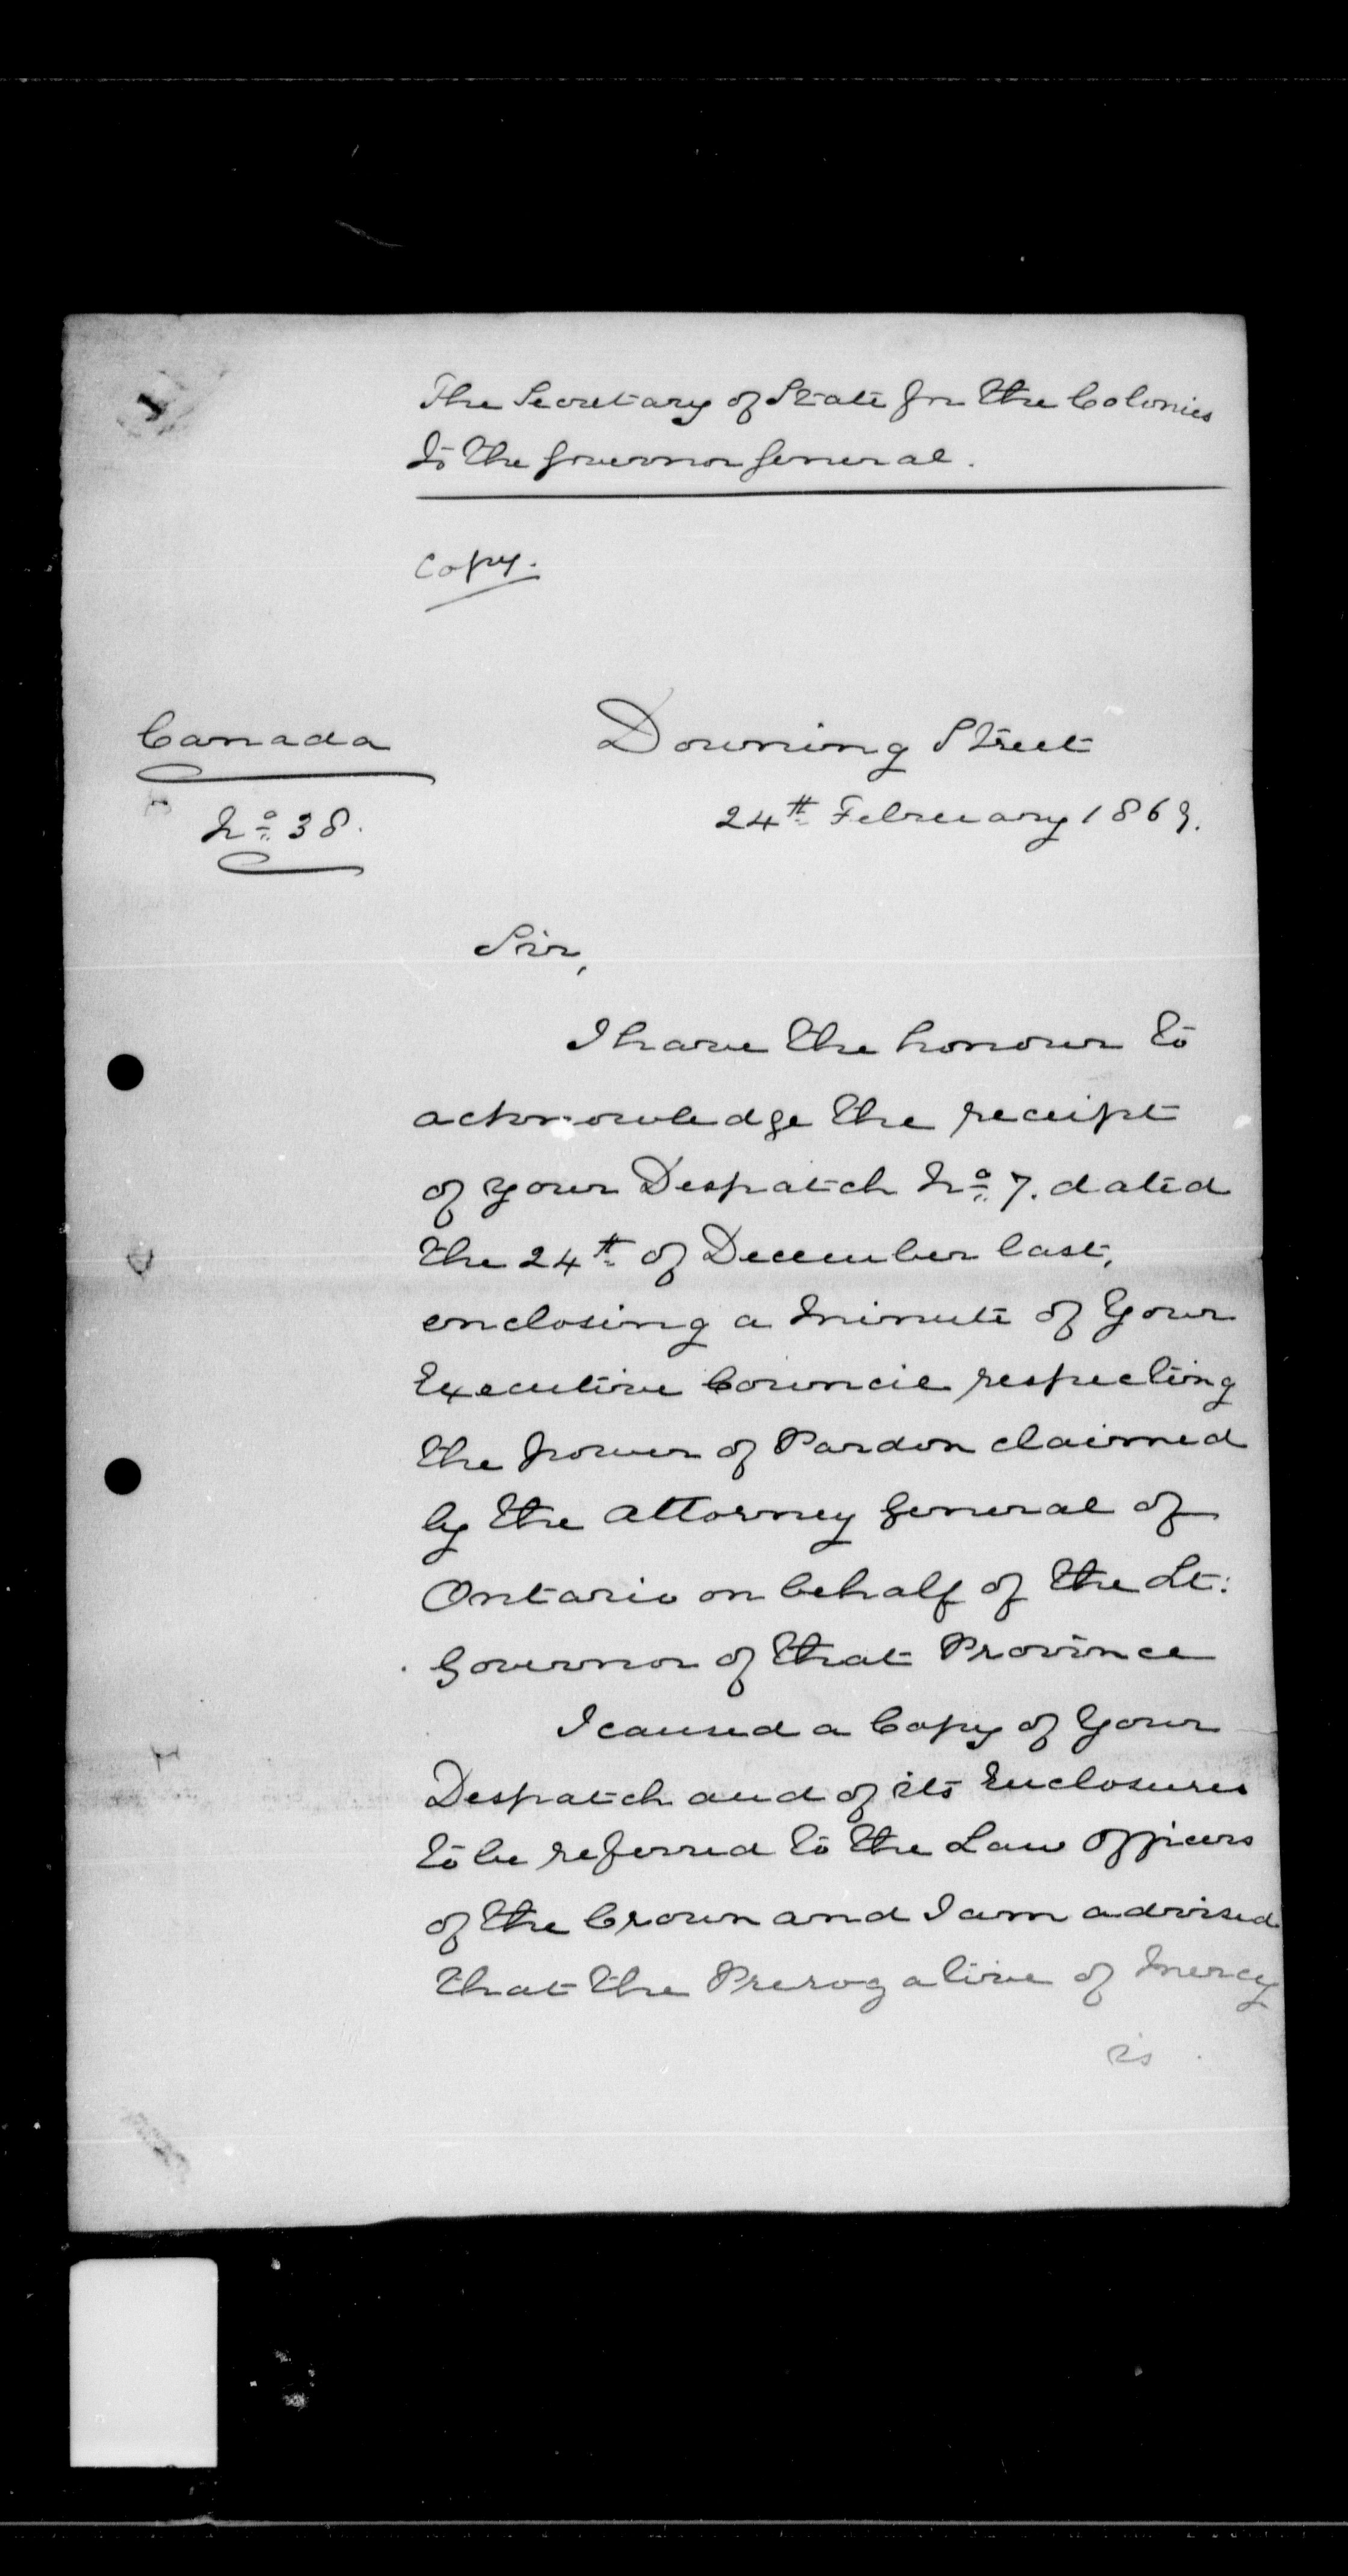 The Secretary of State for the Colonies
To the Governor General.
Copy.
Canada
No. 38.
Downing Street
24th February 1869.
Sir,
I have the honour to
acknowledge the receipt
of your Despatch No. 7. dated
the 24th of December last,
enclosing a Minute of Your
Executive Council respecting
the power of Pardon claimed
by the Attorney General of
Ontario on behalf of the Lt:
Governor of that Province
I caused a Copy of Your
Despatch and of its Enclosures
to be referred to the Law Officers
of the Crown and I am advised
that the Prerogative of Mercy
is